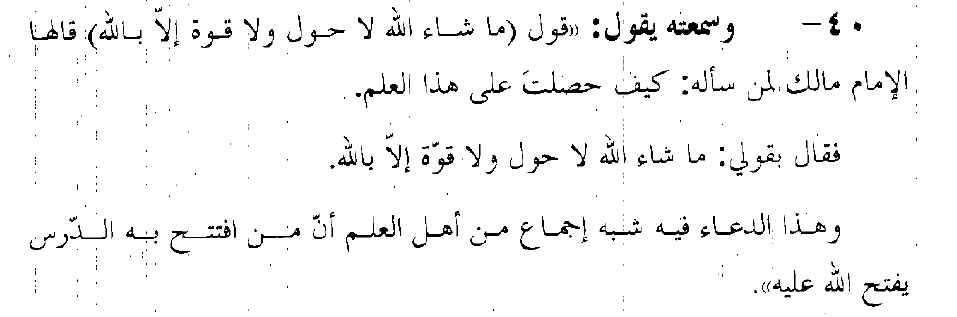 ٤٠- وسمعته يقول: «قول (ما شاء الله لا حول ولا قوة إلاّ بالله) قالها
الإمام مالك لمن سأله: كيف حصلتَ على هذا العلم.
فقال بقولي: ما شاء الله لا حول ولا قوّة إلاّ بالله.
وهذا الدعاء فيه شبه إجماع من أهل العلم أنّ من افتتح به الدّرس
يفتح الله عليه».